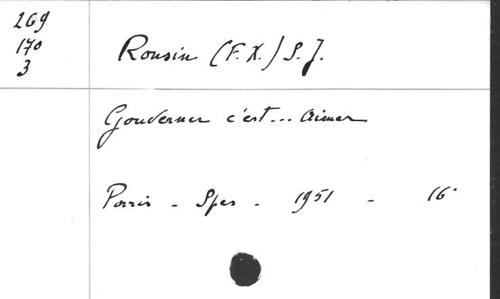 269
170
3
Ronsin (F.X.) S.J.
Gouverner c'est... Aimer
Paris - Spes - 1951 - 16°